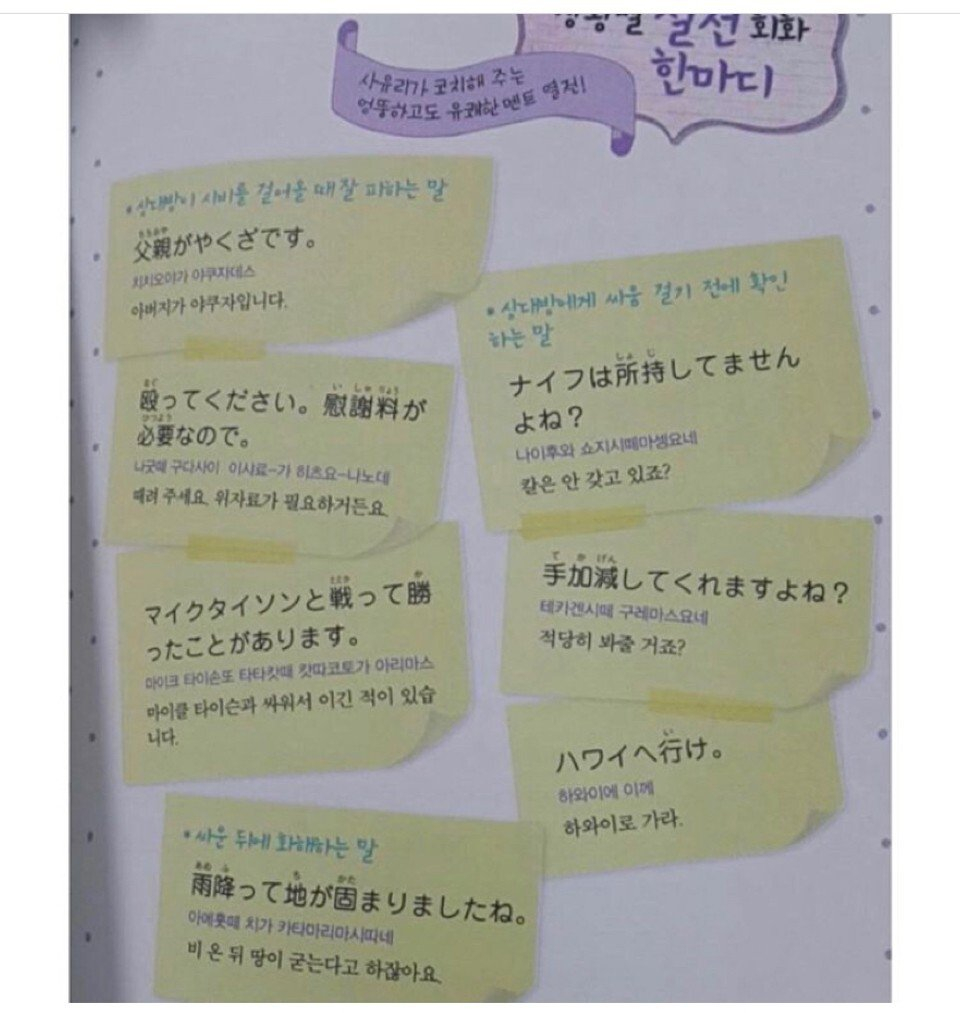 상황별 실전 회화
한마디
사유리가 코치해 주는
엉뚱하고도 유쾌한 멘트 열전!
• 상대방이 시비를 걸어올 때 잘 피하는 말
ちちおや
父親がやくざです。
치치오야가 야쿠자데스
아버지가 야쿠자입니다.
なぐ い しゃ りょう
殴ってください。慰謝料が
ひつよう
必要なので。
나굿떼 구다사이 이샤료-가 히츠요-나노데
때려 주세요. 위자료가 필요하거든요.
たたか か
マイクタイソンと戦って勝
ったことがあります。
마이크 타이손또 타타캇때 캇따코토가 아리마스
마이클 타이슨과 싸워서 이긴 적이 있습
니다.
• 상대방에게 싸움 걸기 전에 확인
하는 말
しょ じ
ナイフは所持してません
よね？
나이후와 쇼지시떼마셍요네
칼은 안 갖고 있죠?
て か げん
手加減してくれますよね？
테카겐시떼 구레마스요네
적당히 봐줄 거죠?
い
ハワイへ行け。
하와이에 이께
하와이로 가라.
• 싸운 뒤에 화해하는 말
あめ ふ ち かた
雨降って地が固まりましたね。
아메훗떼 치가 카타마리마시따네
비 온 뒤 땅이 굳는다고 하잖아요.